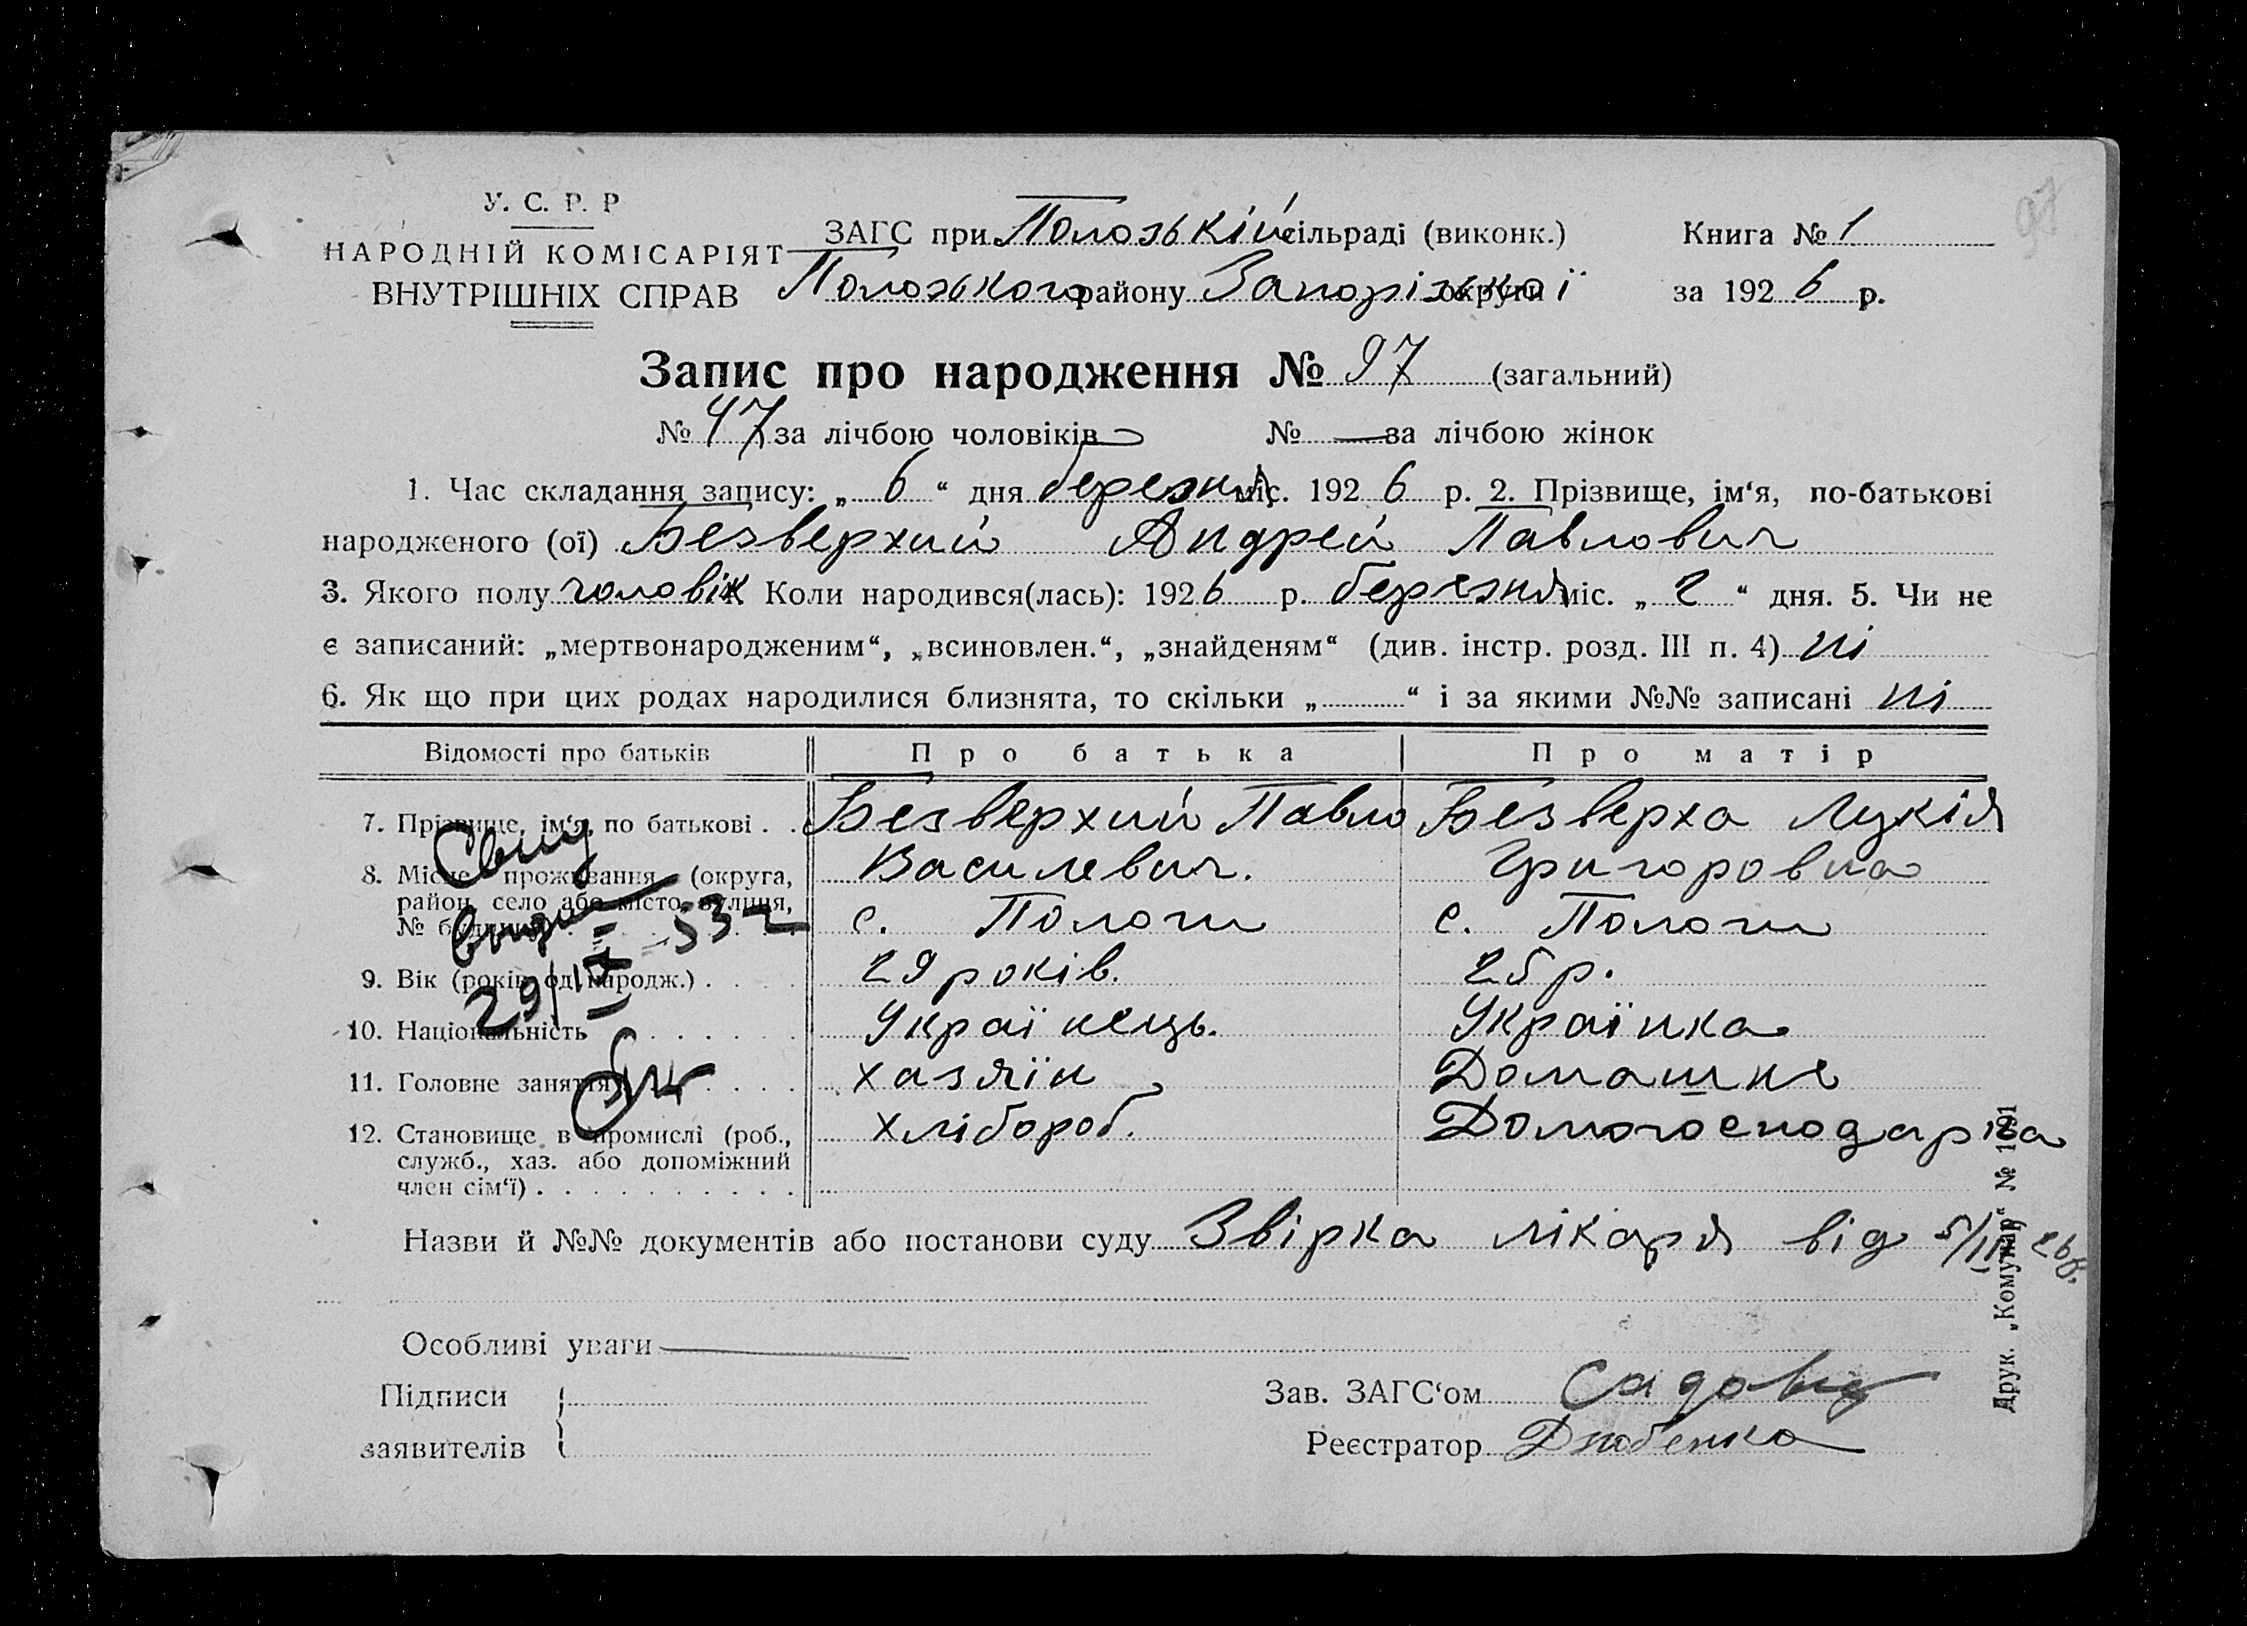 97
У. С. Р. Р
НАРОДНІЙ КОМІСАРІЯТ
ВНУТРІШНІХ СПРАВ
ЗАГС при Полозькій сільраді (виконк.)
Полозького району Запорізької округи
Книга № 1
за 1926 р.
Запис про народження № 97 (загальний)
№ 47 за лічбою чоловіків № — за лічбою жінок
1. Час складання запису: „ 6 “ дня березня міс. 1926 р. 2. Прізвище, ім‘я, по-батькові
народженого (ої) Безверхий Андрей Павлович
3. Якого полу чоловік Коли народився(лась): 1926 р. березня міс. „ 2 “ дня. 5. Чи не
є записаний: „мертвонародженим“, „всиновлен.“, „знайденям“ (див. інстр. розд. III п. 4) ні
6. Як що при цих родах народилися близнята, то скільки „ “ і за якими №№ записані ні
Відомості про батьків Про батька Про матір
7. Прізвище, ім‘я, по батькові . . Безверхий Павло Безверха Лукія
Василевич. Григоровна
8. Місце проживання (округа,
район, село або місто, вулиця,
№ будинку) с. Пологи с. Пологи
9. Вік (років од народж.) . . . . 29 років. 25 р.
10. Національність . . . . . . . Українець. Українка
11. Головне заняття . . . . . хазяїн Домашнє
12. Становище в промислі (роб., хлібороб. Домогосподарка
служб., хаз. або допоміжний
член сім‘ї) . . . . . . . . . .
29/IX-53 г
Назви й №№ документів або постанови суду Звірка лікаря від 5/III 26р.
Особливі уваги —
Підписи
заявителів
Зав. ЗАГС‘ом
Реєстратор
Друк. „Комунар“ №